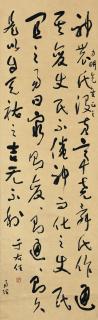 神農氏沒黃帝堯舜氏作通
其變使民不倦神而化之使民
宜之易窮則變變則通通則久
是以自天祐之吉无不利
于右任